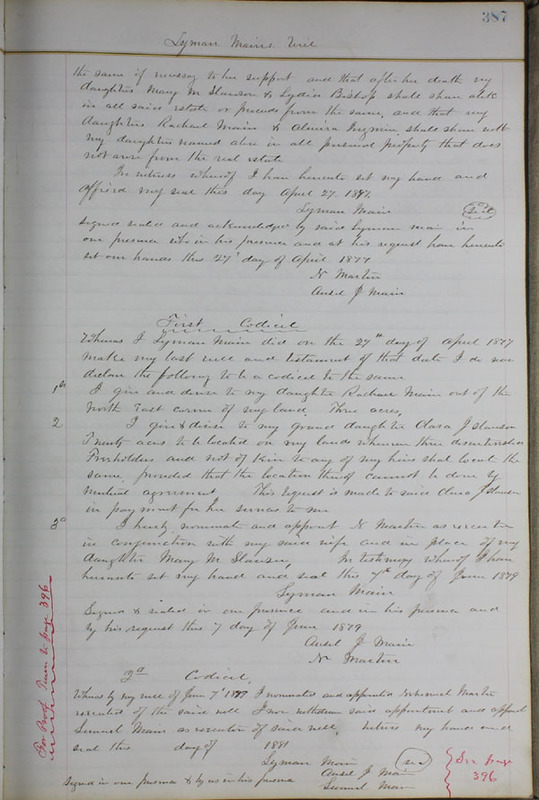 387
Lyman Mains Will
the same if necessary to her support and that after her death my
daughters Mary M Slauson & Lydia Bishop shall share alike
in all said estate or proceeds from the same, and that my
daughters Rachael Main & Almira shall share with
my daughters named above in all personal property that does
not arise from the real estate
In witness whereof I have hereunto set my hand and
affixed my seal this day April 27. 1877.
Lyman Main
Seal
Signed sealed and acknowledged by said Lyman Main in
our presence who in his presence and at his request have hereunto
set our hands this 27' day of April 1877
N Martin
Ansel J Main
First Codicil
Whereas I Lyman Main did on the 27th day of April 1877
make my last will and testament of that date I do now
declare the following to be a codicil to the same
1st I give and devise to my daughter Rachael Main out of the
North East corner of my land, Three acres,
2 I give & devise to my grand daughter Clara J Slauson
Twenty acres to be located on my lands whereon three disinterested
Freeholders and not of Kin to any of my heirs shall locate the
same provided that the location thereof cannot be done by
mutual agreement. This bequest is made to said Clara J Slauson
in payment for her services to me
3d I hereby nominate and appoint N Martin as executor
in conjunction with my said wife and in place of my
daughter Mary M Slauson, In testimony whereof I have
hereunto set my hand and seal this 7th day of June 1879
Lyman Main
Signed & sealed in our presence and in his presence and
by his request this 7 day of June 1879
Ansel J Main
N Martin
2d Codicil,
Whereas by my will of June 7th I nominated and appointed Martin
executor of the said will I now withdraw said appointment and appoint
Lemuel Main as executor of said will, witness my hand and
seal this day of 1881
Lyman Main
seal
Signed in our presence & by us in his presence
Ansel J Main
Lemuel Main
For Proof Turn to page 396
See page
396